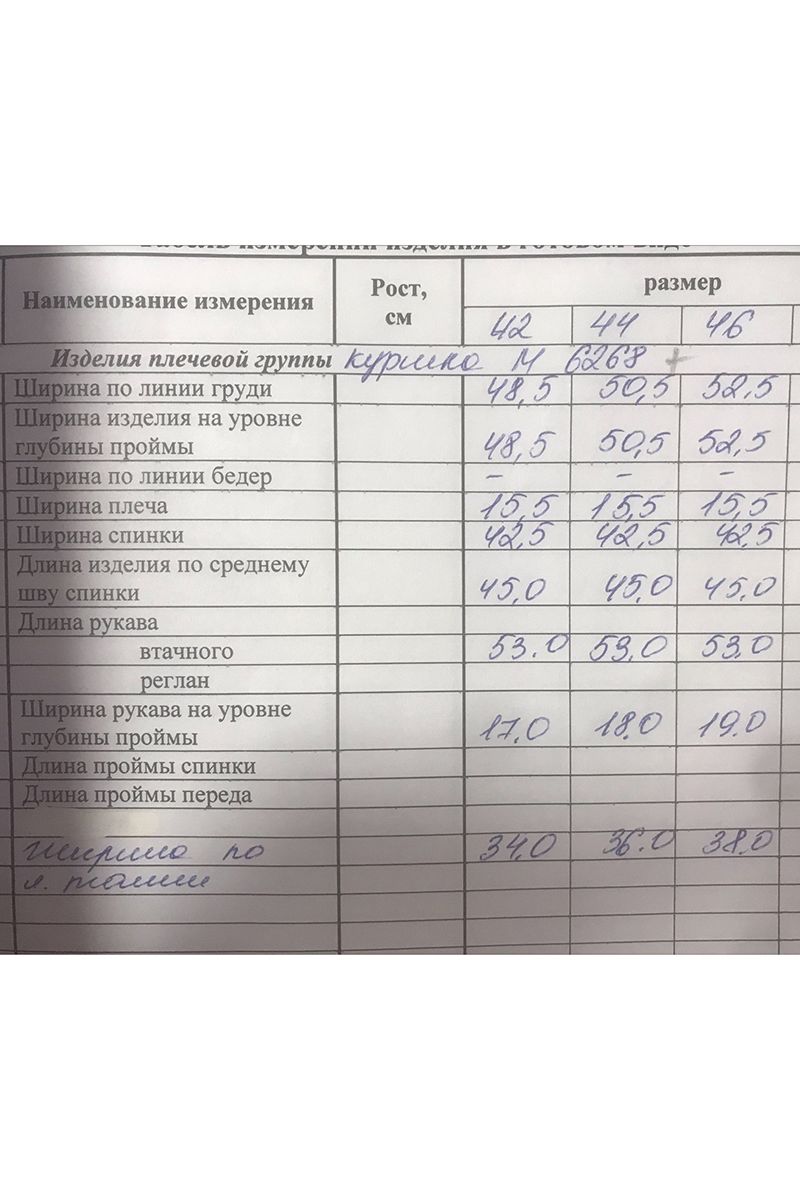 Табель измерений изделия в готовом виде
Наименование измерения Рост, см размер
42 44 46
Изделия плечевой группы куртка М 6268 +
Ширина по линии груди 48,5 50,5 52.5
Ширина изделия на уровне
глубины проймы 48,5 50,5 52,5
Ширина по линии бедер - - -
Ширина плеча 15,5 15,5 15,5
Ширина спинки 42,5 42,5 42,5
Длина изделия по среднему
шву спинки 45,0 45,0 45,0
Длина рукава
втачного 53.0 53,0 53,0
реглан
Ширина рукава на уровне
глубины проймы 17,0 18,0 19,0
Длина проймы спинки
Длина проймы переда
Ширина по 34,0 36.0 38,0
л. талии